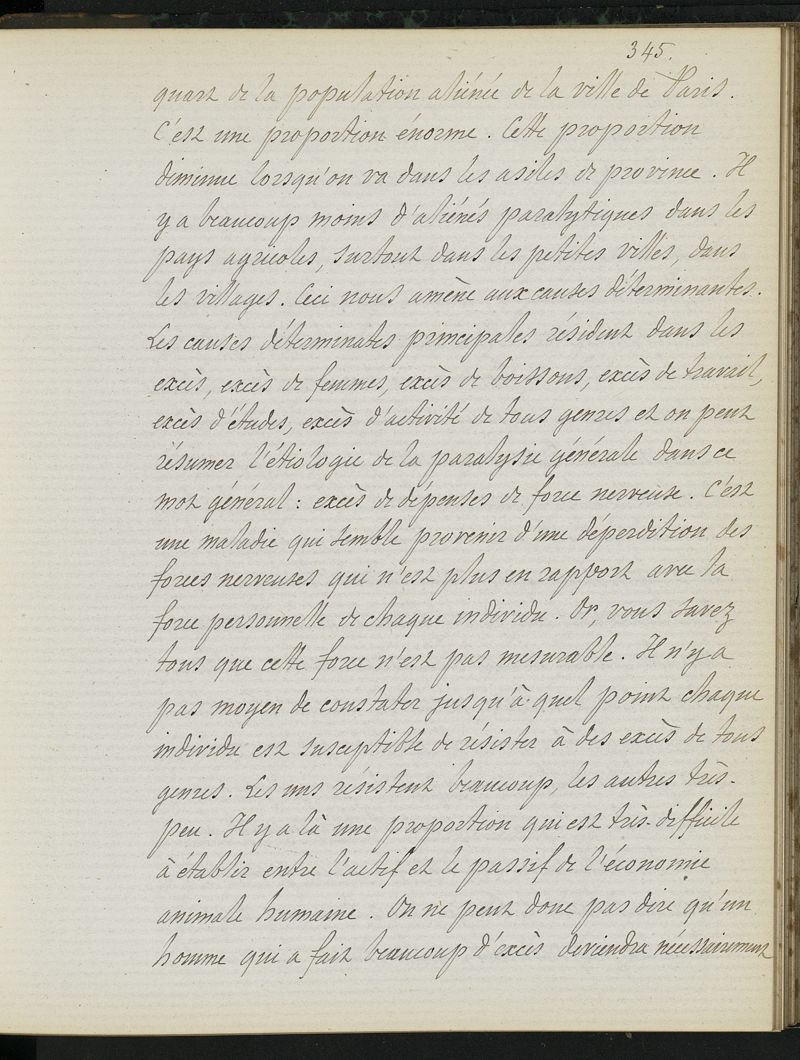 345.
quart de la population aliénée de la ville de Paris.
C'est une proportion énorme. Cette proportion
diminue lorsqu'on va dans les asiles de province. Il
y a beaucoup moins d'aliénés paralytiques dans les
pays agricoles, surtout dans les petites villes, dans
les villages. Ceci nous amène aux causes déterminantes.
Les causes déterminates principales résident dans les
excès, excès de femmes, excès de boissons, excès de travail,
excès d'études, excès d'activité de tous genres et on peut
résumer l'étiologie de la paralysie générale dans ce
mot général : excès de dépenses de force nerveuse. C'est
une maladie qui semble provenir d'une déperdition des
forces nerveuses qui n'est plus en rapport avec la
force personnelle de chaque individu. Or, vous savez
tous que cette force n'est pas mesurable. Il n'y a
pas moyen de constater jusqu'à quel point chaque
individu est susceptible de résister à des excès de tous
genres. Les uns résistent beaucoup, les autres très-
peu. Il y a là une proportion qui est très-difficile
à établir entre l'actif et le passif de l'économie
animale humaine. On ne peut donc pas dire qu'un
homme qui a fait beaucoup d'excès deviendra nécessairement